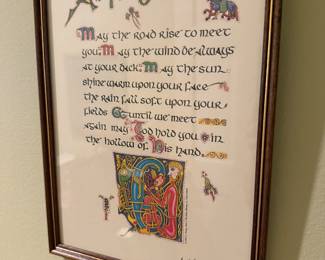 May the road rise to meet
you. May the wind be always
at your back. May the sun
shine warm upon your face
the rain fall soft upon your
fields & until we meet
again may God hold you in
the hollow of his hand.